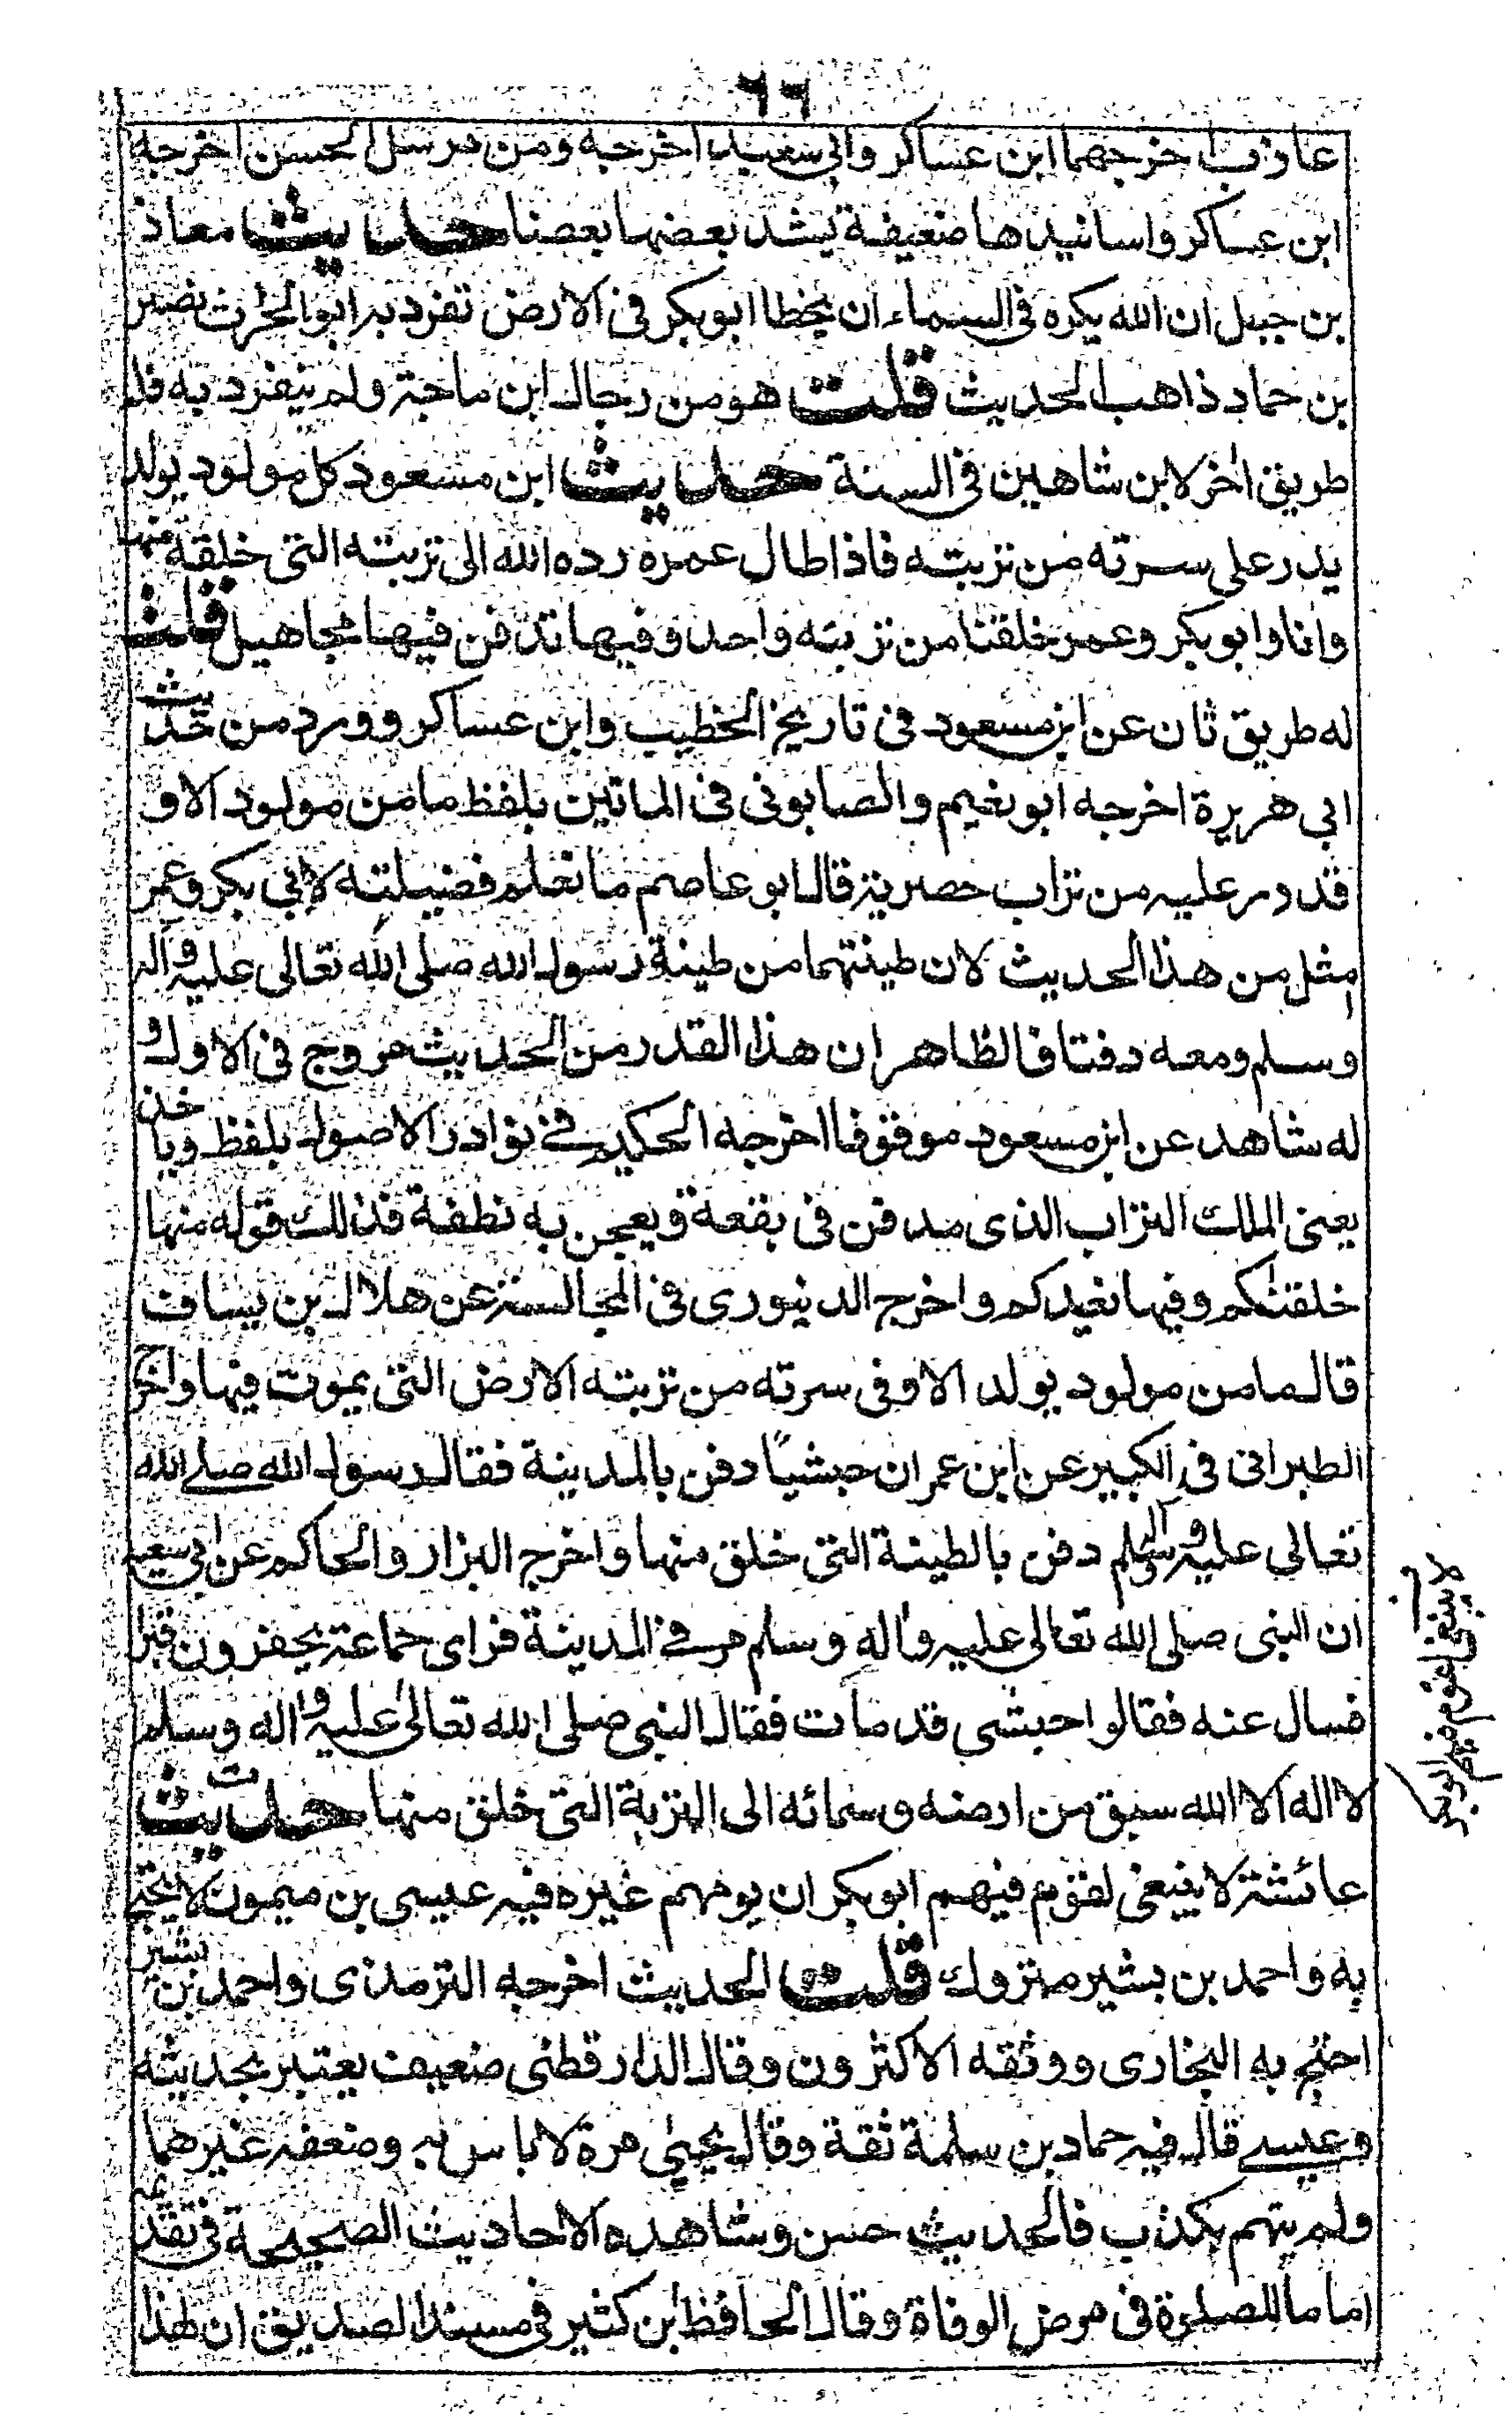 ٦٦
عازب اخرجهما ابن عساكر وابي سعيد اخرجه ومن مرسل الحسن اخرجه
ابن عساكر واسانيدها ضعيفة يشد بعضها بعضا حديث معاذ
بن جبل ان الله يكره فى السماء ان يخطا ابو بكر فى الارض تفرد به ابو الحرث نصير
بن حماد ذاهب الحديث قلت هو من رجال ابن ماجة ولم ينفرد به فله
طريق اخر لابن شاهين فى السنة حديث ابن مسعود كل مولود يولد
يذر على سرته من تربته فاذا طال عمره رده الله الى تربته التى خلقه منها
وانا وابو بكر وعمر خلقنا من تربته واحد وفيها تدفن فيها مجاهيل قلت
له طريق ثان عن ابن مسعود فى تاريخ الخطيب وابن عساكر وورد من حديث
ابي هريرة اخرجه ابو نعيم والصابونى فى الماتين بلفظ ما من مولود الا و
قد در عليه من تراب حضريته قال ابو عاصم ما نعلم فضيلته لابي بكر وعمر
مثل من هذا الحديث لان طينتهما من طينة رسول الله صلى الله تعالى عليه وآله
وسلم ومعه دفتا فالظاهر ان هذا القدر من الحديث مروج فى الاول و
له شاهد عن ابن مسعود موقوفا اخرجه الحكيم فى نوادر الاصول بلفظ وياخذ
يعنى الملك التراب الذى مدفن فى بقعة ويعجن به نطفة فذالك قوله منها
خلقنكم وفيها نعيدكم واخرج الدينورى فى المجالسة عن هلال بن يساف
قال ما من مولود يولد الا وفى سرته من تربته الارض التى يموت فيها واخرج
الطبرانى فى الكبير عن ابن عمر ان حبشيًا دفن بالمدينة فقال رسول الله صلى الله
تعالى عليه وآله وسلم دفن بالطينة التى خلق منها واخرج البزار والحاكم عن ابى سعيد
ان النبى صلى الله تعالى عليه واله وسلم مر فى المدينة فراى جماعة يحفرون قبرا
فسال عنه فقالوا حبشى قد مات فقال النبى صلى الله تعالى عليه و اله وسلم
لا اله الا الله سبق من ارضه وسمائه الى التربة التى خلق منها حديث ت
عائشة لا ينبغى لقوم فيهم ابو بكر ان يومهم غيره فيه عيسى بن ميمون لا يحتج
به واحمد بن بشير متروك قلت الحديث اخرجه الترمذى واحمد بن بشير
احتج به البخارى ووثقه الاكثرون وقال الدارقطنى ضعيف يعتبر بحديثه
وعيسى قال فيه حماد بن سلمة ثقة وقال يحيى مرة لا باس به وضعفه غيرهما
ولم يتهم بكذب فالحديث حسن وشاهده الاحاديث الصحيحة فى تقدمه
اماما للصلوة فى مرض الوفاة وقال الحافظ ابن كثير فى مسند الصديق ان لهذا
لا ينبغى لقوم فيهم ابو بكر